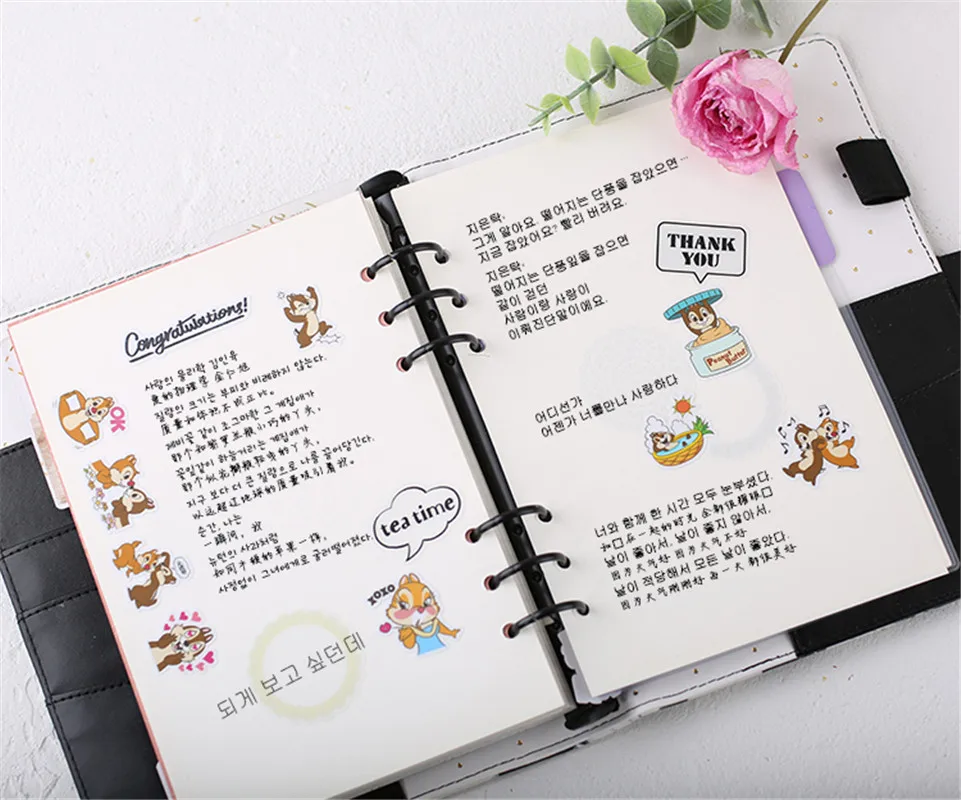 Congratulations!
사랑의 물리학 김인육
爱的物理学 金仁旭
질량의 크기는 부피와 비례하지 않는다.
质量和体积不成正比。
제비꽃같이 조그마한 그 계집애가
那个和紫堇菜般小巧的丫头,
꽃잎같이 하늘거리는 그 계집애가
那个似花瓣般轻曳的丫头,
지구 보다 더 큰 질량으로 나를 끌어당긴다.
以远超过地球的质量吸引着我。
순간, 나는
一瞬间, 我
뉴턴의 사과처럼
如同牛顿的苹果一样,
사정없이 그녀에게로 굴러떨어졌다.
OK
tea time
XOXO
되게 보고 싶던데
지은탁,
그게 알아요. 떨어지는 단풍을 잡았으면…
지금 잡았어요? 빨리 버려요.
지은탁.
떨어지는 단풍잎을 잡으면
같이 걷던
사람이랑 사랑이
이뤄진단말이에요.
THANK
YOU
Peanut
Butter
어디선가
어젠가 너를만나 사랑하다
너와 함께 한 시간 모두 눈부셨다.
和□在一起的时光全都很耀眼□
날이 좋아서, 날이 좋지 않아서,
因为天气好 因为天气不好
날이 적당해서 모든 날이 좋았다.
因为天气刚刚好 每一天都很美好